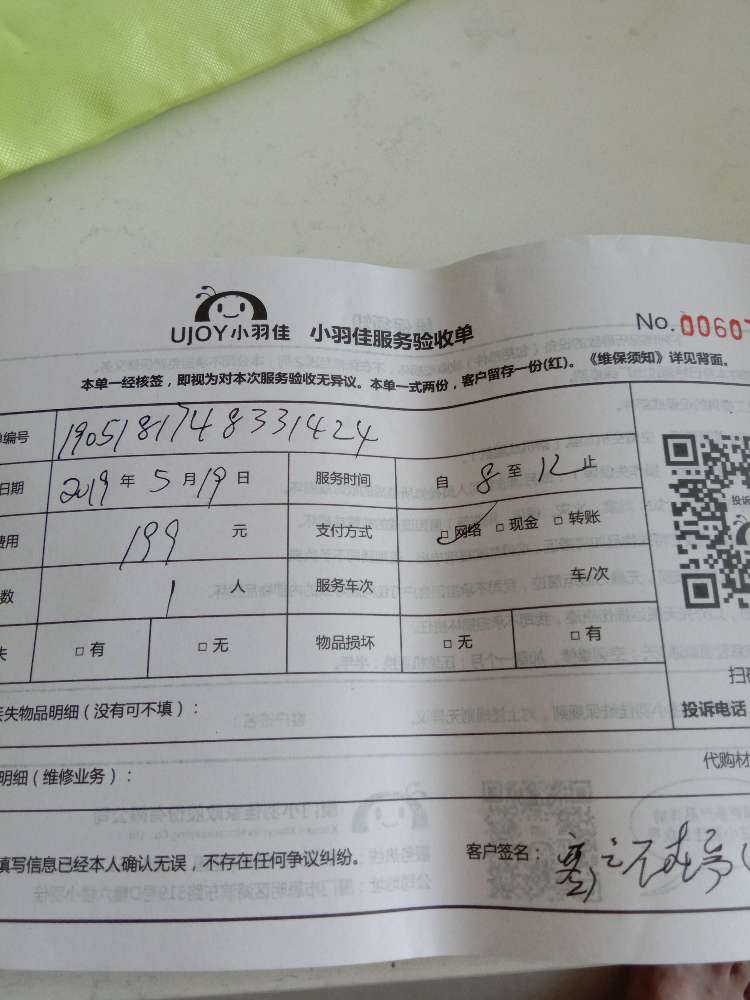 UJOY小羽佳 小羽佳服务验收单 No.00607
本单一经核签，即视为对本次服务验收无异议。本单一式两份，客户留存一份(红)。《维保须知》详见背面。
单编号 1905181748331424
日期 2019年5月19日 服务时间 自8至12止
费用 199元 支付方式 □网络 □现金 □转账
数 1人 服务车次 车/次
失 □有 □无 物品损坏 □无 □有
丢失物品明细（没有可不填）：
投诉
扫码
投诉电话
明细（维修业务）：
代购材
填写信息已经本人确认无误，不存在任何争议纠纷。
客户签名：